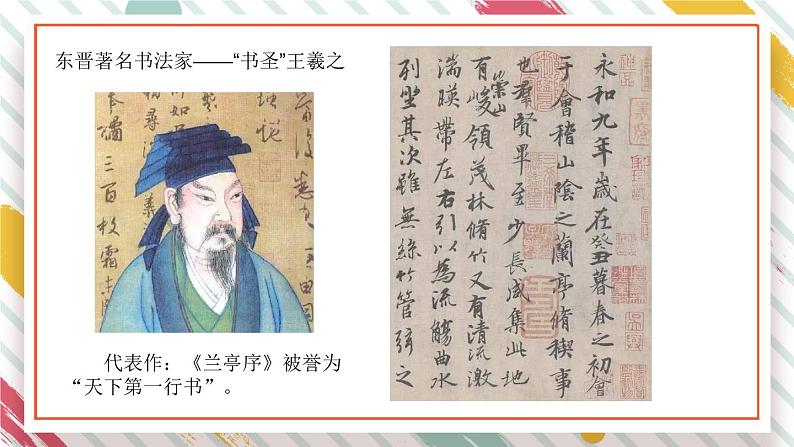 东晋著名书法家——“书圣”王羲之
三百枚霜未
代表作：《兰亭序》被誉为
“天下第一行书”。
永和九年歲在癸丑暮春之初會
于會稽山陰之蘭亭脩禊事
也羣賢畢至少長咸集此地
有崇山峻領茂林脩竹又有清流激
湍暎帶左右引以為流觴曲水
列坐其次雖無絲竹管弦之